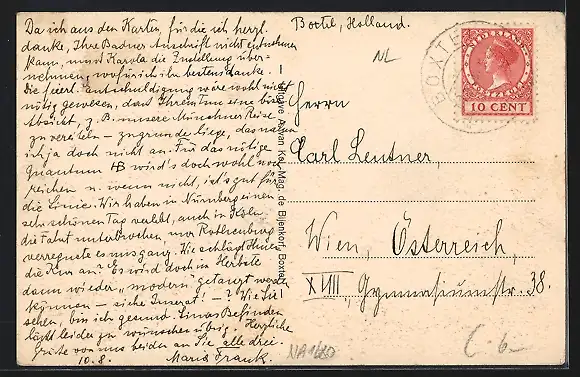 Da ich aus den Karten, für die ich herzl.
danke, Ihre Badner Anschrift nicht entnehmen
kann, muß Karola die Zustellung über-
nehmen, wofür ich ihr bestens danke. –
Die feierl. Entschuldigung wäre wohl nicht
nötig gewesen, daß Ihrem Tun eine böse
Absicht, z. B. unsere Münchner Reise
zu vereiteln – zugrunde liege, das nahm
ich ja doch nicht an. Für das nötige
Quantum HB wird's doch wohl noch
reichen u. wenn nicht, ist's gut für
die Linie. Wir haben in Nürnberg einen
sehr schönen Tag verlebt, auch in Köln
die Fahrt unterbrochen, nur Rothenburg
verregnete es uns ganz. Wie schlägt Ihnen
die Kur an? Es wird doch im Herbste
dann wieder „modern" getanzt werden
können – siehe Inserat! – ? Wie Sie
sehen, bin ich gesund. Linas Befinden
läßt leider zu wünschen übrig. Herzliche
Grüße von uns beiden an Sie alle drei.
10.8. Maria Frank.
Uitgave Adrian Kal. Mag. de Bijenkorf, Boxtel
Boxtel, Holland.
NL
NEDERLAND
10 CENT
BOXTEL
Herrn
Carl Leutner,
Wien, Österreich,
XVIII, Gymnasiumstr. 38.
NA1680